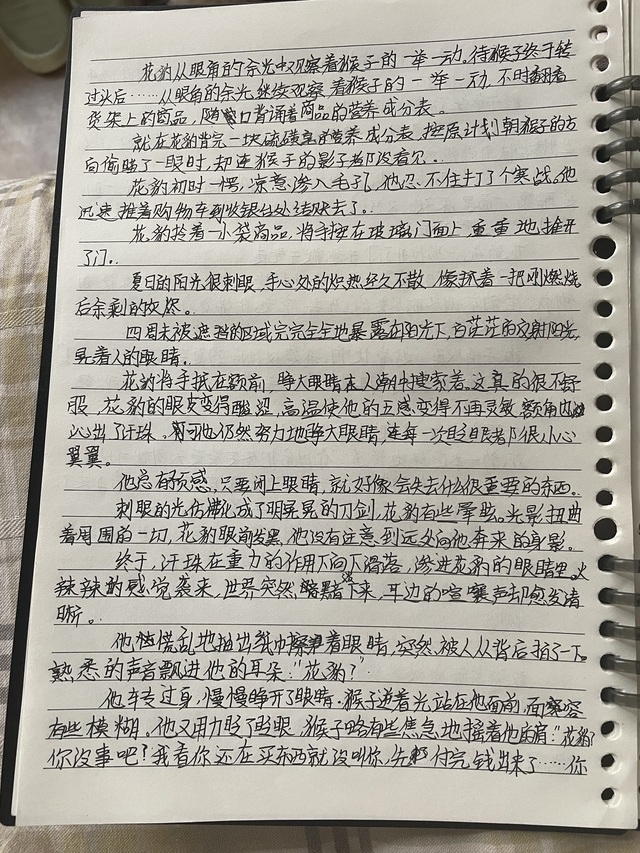 花豹从眼角的余光中观察着猴子的一举一动。待猴子终于转
过头后……从眼角的余光继续观察着猴子的一举一动,不时翻看
货架上的商品,随口背诵着商品的营养成分表。
就在花豹背完一块硫磺皂的营养成分表,按原计划朝猴子的方
向偷瞄了一眼时,却连猴子的影子都没看见。
花豹初时一愣,凉意渗入毛孔,他忍不住打了个寒战。他
迅速推着购物车到收银台处结账去了。
花豹拎着一小袋商品,将手按在玻璃门面上,重重地推开
了门。
夏日的阳光很刺眼,手心处的炽热经久不散,像抓着一把刚燃烧
后余剩的灰烬。
四周未被遮挡的区域完完全全地暴露在阳光下,白茫茫的反射阳光,
晃着人的眼睛。
花豹将手抵在额前,睁大眼睛在人潮中搜索着。这真的很不舒
服,花豹的眼皮变得酸涩,高温使他的五感变得不再灵敏,额角也
沁出了汗珠。可他仍然努力地睁大眼睛,连每一次眨眼都很小心
翼翼。
他总有预感,只要闭上眼睛,就好像会失去什么很重要的东西。
刺眼的光仿佛化成了明晃晃的刀剑,花豹有些晕眩。光影扭曲
着周围的一切,花豹眼前发黑,他没有注意到远处向他奔来的身影。
终于,汗珠在重力的作用下向下滑落,渗进花豹的眼睛里。火
辣辣的感觉袭来,世界突然黯淡下来,耳边的喧嚣声却愈发清
晰。
他慌乱地抽出纸巾擦着眼睛,突然被人从背后拍了一下。
熟悉的声音飘进他的耳朵:“花豹?”
他转过身,慢慢睁开了眼睛。猴子逆着光站在他面前,面容
有些模糊。他又用力眨了眨眼,猴子略有些焦急地摇着他的肩:“花豹?
你没事吧?我看你还在买东西就没叫你,先付完钱出来了……你